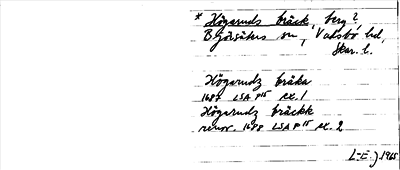 * Högarnds bräck, berg?
Bjärsäters sn, Valsbo hd,
Skar. l.
Högarndz bräka
1687 LSA P15 nr. 1
Högarndz bräckk
renov. 1688 LSA P15 nr. 2
L-E. J. 1965